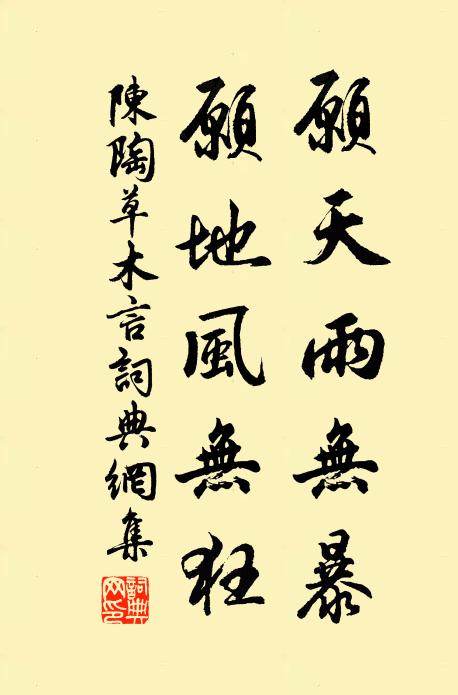 願天雨無暴
願地風無狂
陳陶草木言詞典網集
詞典
網印